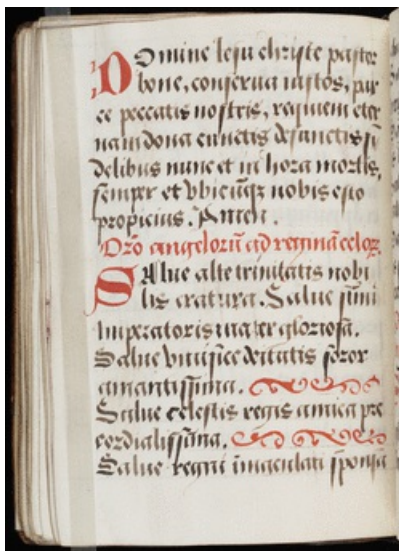 Domine Iesu christe pastor
bone, conserua iustos, par
ce peccatis nostris, requiem eter
nam dona cunctis defunctis fi
delibus nunc et in hora mortis,
semper et vbicūqꝫ nobis esto
propicius. Amen.
Orō angelorū ad reginā celoꝝ
Salue alte trinitatis nobi
lis creatura. Salue sūmi
Imperatoris mater gloriosa.
Salue vniuſice deitatis soror
amantissima.
Salue celestis regis amica pre
cordialissima.
Salue regni īmaculati sponsa